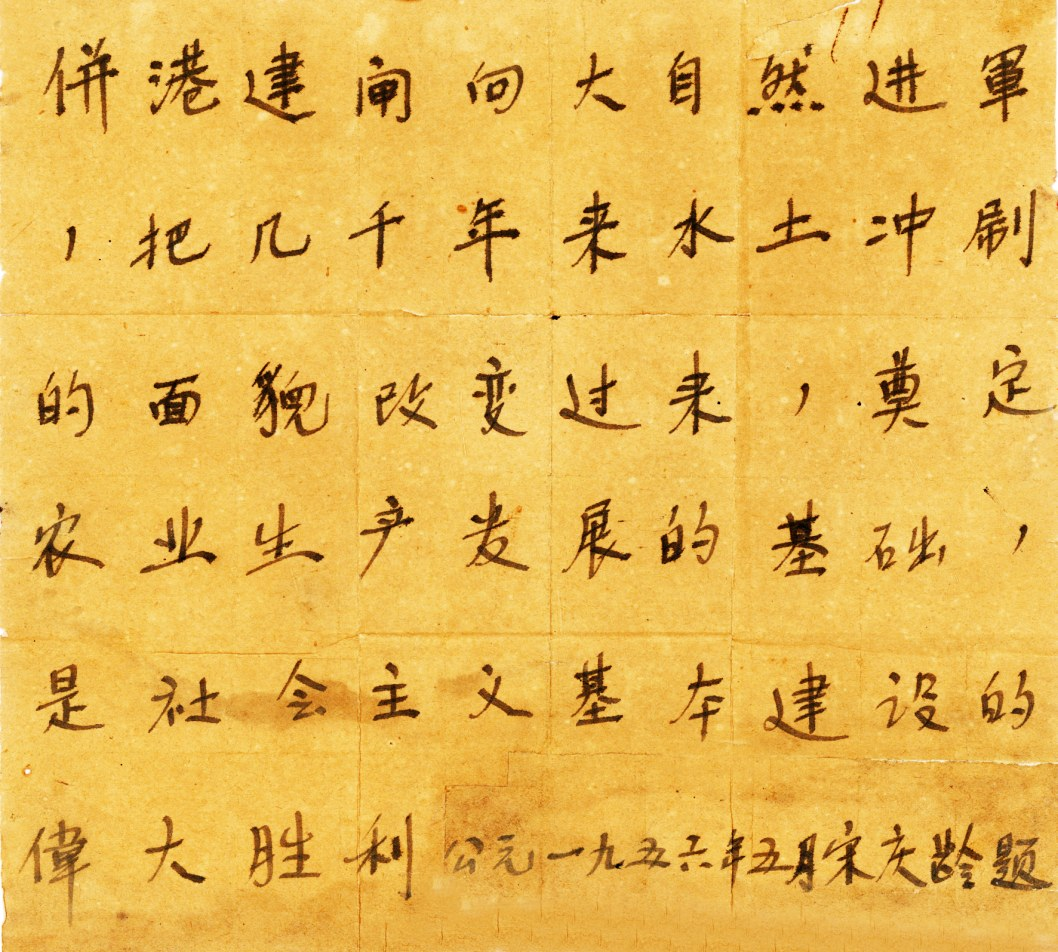 併港建闸向大自然进軍
，把几千年来水土冲刷
的面貌改变过来，奠定
农业生产发展的基础，
是社会主义基本建设的
偉大胜利公元一九五六年五月宋庆龄题